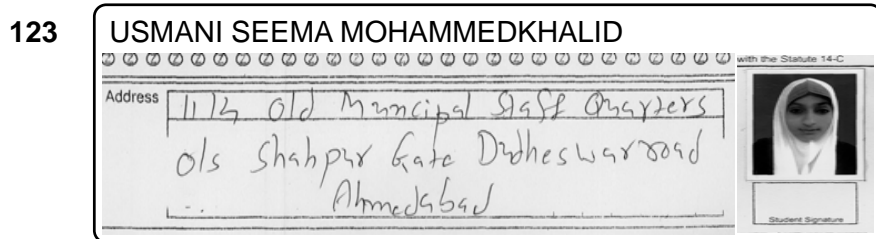 123
USMANI SEEMA MOHAMMEDKHALID
with the Statute 14-C
Address
11/4 old Muncipal Staff Quarters
o/s Shahpur Gate Dudheswar road
Ahmedabad
Student Signature